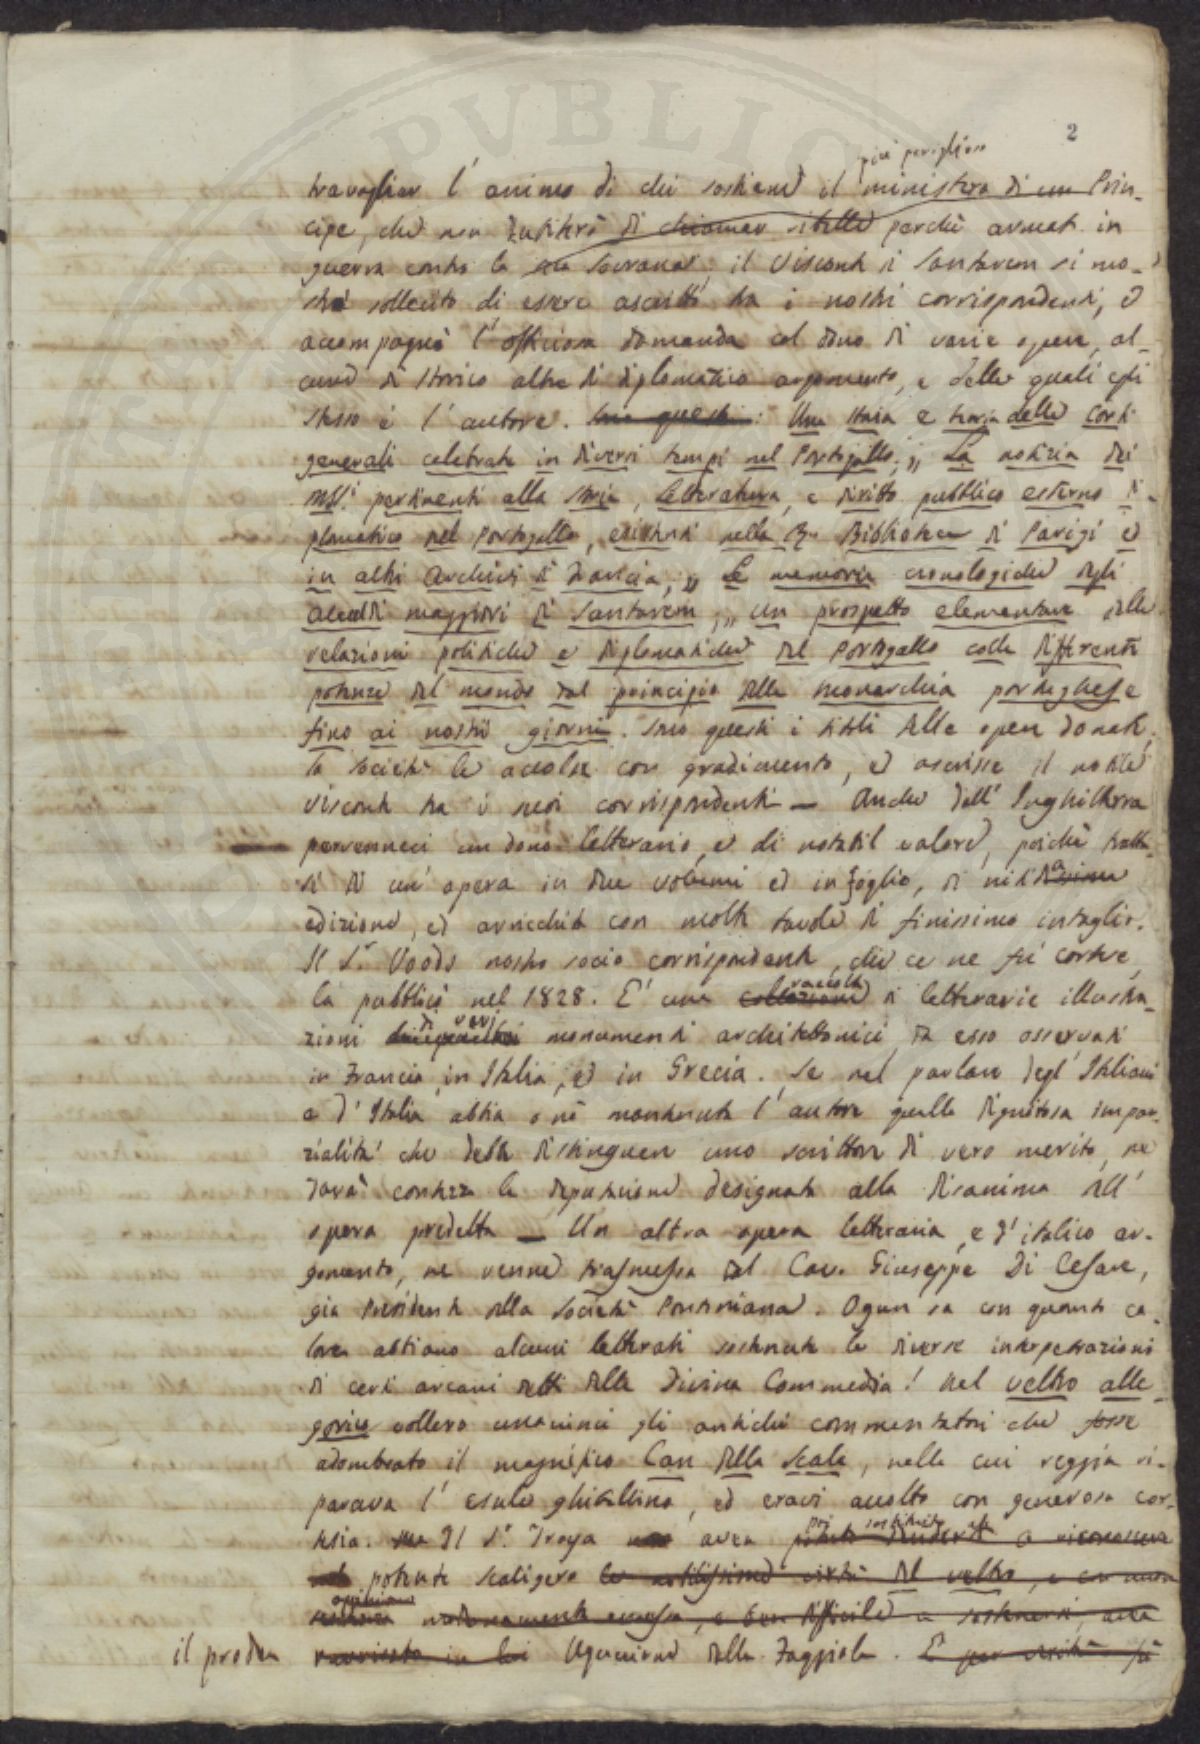 2
più periglioso
travagliar l' animo di chi sostiene il ministero di un Prin-
cipe, che non dubiterà di chiamar ribelle perchè armati in
guerra contro la sua sovrana. il Visconte di Santarem si mo-
strò sollecito di essere ascritto tra i nostri corrispondenti, e
accompagnò l' officiosa domanda col dono di varie opere, al-
cune di storico altre di diplomatico argomento, e delle quali egli
stesso è l' autore. Sono queste: Una storia e teoria delle Corti
generali celebrate in diversi tempi nel Portogallo; „ La notizia dei
MSS. pertinenti alla storia, letteratura, e diritto pubblico esterno di-
plomatico del Portogallo, esistenti nella R. Biblioteca di Parigi e
in altri archivi di Francia, „ Le memorie cronologiche degli
alcaldi maggiori di Santarem, „ un prospetto elementare delle
relazioni politiche e diplomatiche del Portogallo colle differenti
potenze del mondo dal principio della monarchia portoghese
fino ai nostri giorni. Sono questi i titoli delle opere donate.
la società le accolse con gradimento, e ascrisse il nobile
Visconte tra i suoi corrispondenti — Anche dall' Inghilterra
pervenneci un dono letterario, e di notabil valore, poichè tratta-
si di un' opera in due volumi ed in foglio, di nitida
edizione, ed arricchita con molte tavole di finissimo intaglio.
Il Sr. Voods nostro socio corrispondente, che ce ne fu cortese,
la pubblicò nel 1828. E' una collezione raccolta di letterarie illustra-
zioni di varj monumenti architettonici da esso osservati
in Francia, in Italia, e in Grecia. Se nel parlare degl' Italiani
e d' Italia abbia o nò mantenuta l' autore quella dignitosa impar-
zialità che debbe distinguere uno scrittore di vero merito, ne
darà contezza la deputazione designata alla disamina dell'
opera predetta — Un altra opera letteraria, e d' italico ar-
gomento, ne venne trasmessa dal Cav. Giuseppe Di Cesare,
già Presidente della Società Pontaniana. Ognun sa con quanto ca-
lore abbiano alcuni letterati sostenute le diverse interpetrazioni
di certi arcani detti della Divina Commedia! Nel veltro alle-
gorico vollero unanimi gli antichi commentatori che fosse
adombrato il magnifico Can della Scala, nella cui reggia ri-
parava l' esule ghibellino, ed eravi accolto con generosa cor-
tesia. Il Sr. Troya avea poi sostituito a riconoscere
potente scaligero le nobilissime virtù del veltro, e con
opinione nuovamente emessa, e ben difficile a sostenersi, avea
il prode ravvisato in lui Uguccione della Faggiola. E per verità fù